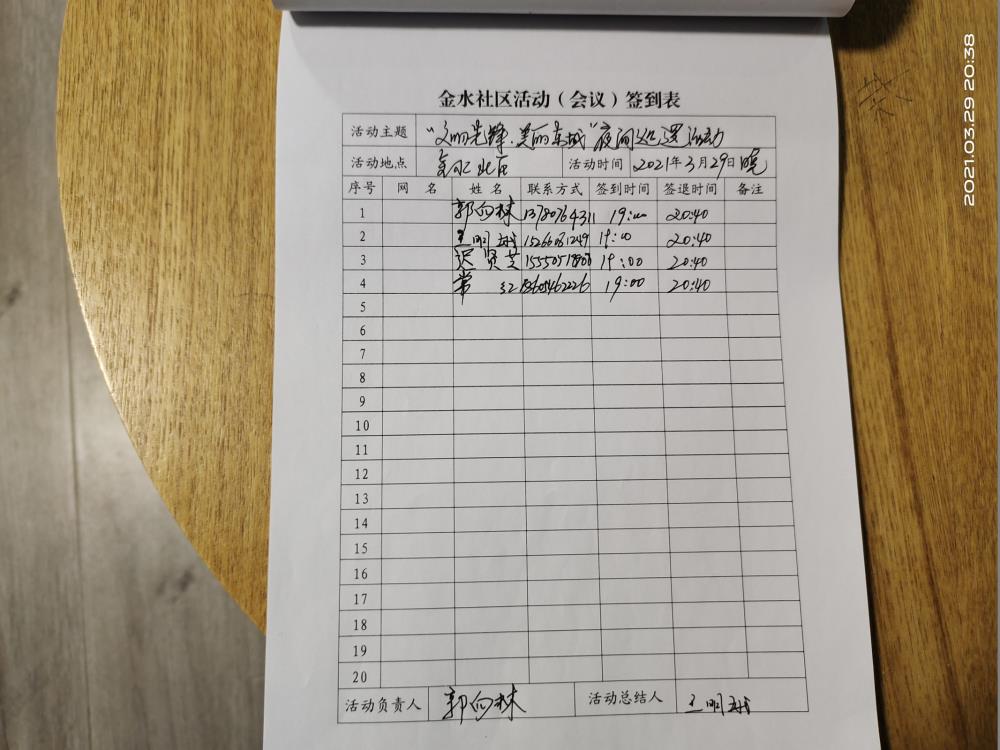 金水社区活动（会议）签到表
活动主题 "文明先锋·美丽东城"夜间巡逻活动
活动地点 金水社区 活动时间 2021年3月29日晚
序号 网 名 姓 名 联系方式 签到时间 签退时间 备注
1 郭向林 19:00 20:40
2 王明 19:00 20:40
3 贤芝 19:00 20:40
4 常 红 19:00 20:40
5
6
7
8
9
10
11
12
13
14
15
16
17
18
19
20
活动负责人 郭向林 活动总结人 王明
2021.03.29 20:38